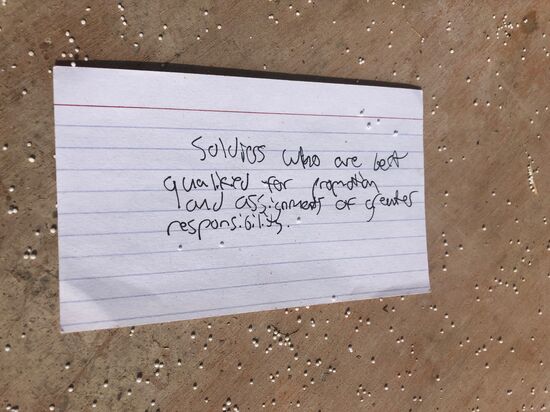 Soldiers who are best
qualified for promotion
and assignments of greater
responsibility.